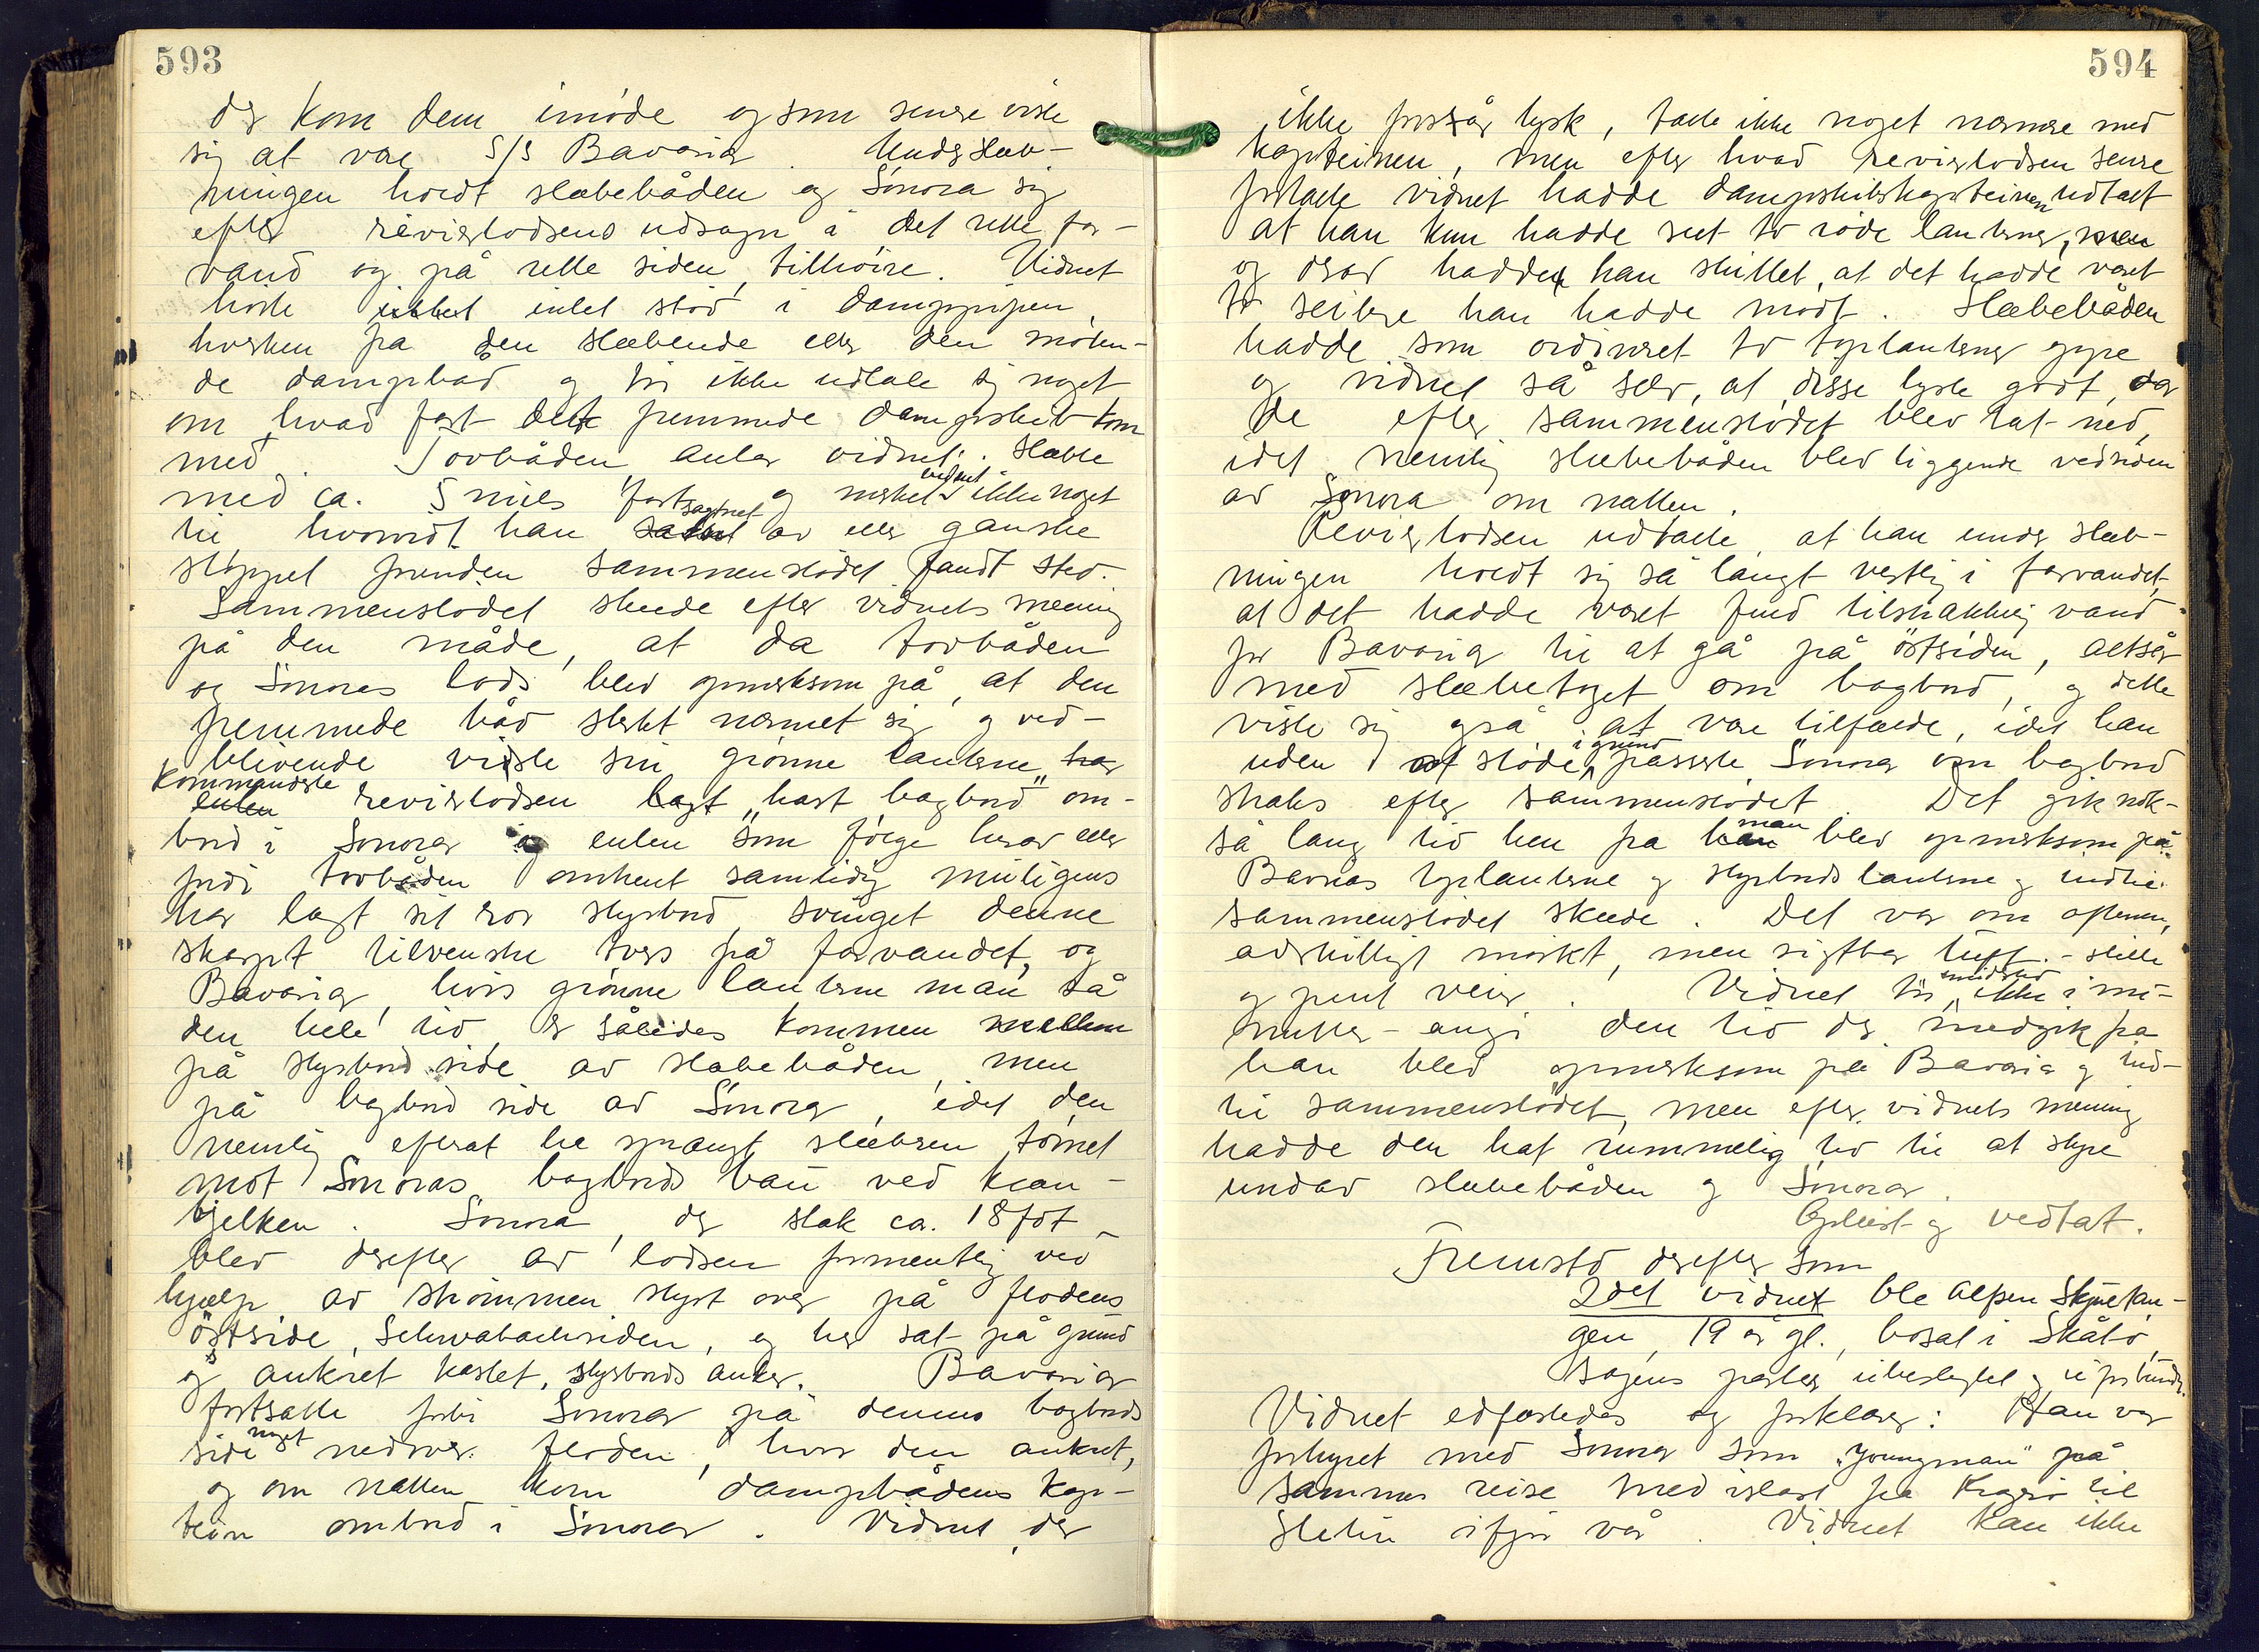 593
der kom dem imöde og som senere viste
sig at være S/S Bavaria. Under slæb-
ningen holdt slæbebåden og Sonora sig
efter revierlodsens udsagn i det rette far-
vand og på rette siden, tilhöire. Vidnet
hörte intet stöd i damppipen
hverken fra den slæbende eller den möten-
de dampbåd og tör ikke udtale sig noget
om hvad fart det fremmede dampskib kom
med. Tovbåden antar vidnet slæbte
med ca. 5 miles fart og merket vidnet ikke noget
til hvorvidt han sagtnet av eller ganske
stoppet forinden sammenstödet fandt sted.
Sammenstödet skeede efter vidnets mening
på den måde, at da tovbåden
og Sonoras lods blev opmerksom på, at den
fremmede båd sterkt nærmet sig og ved-
blivende viste sin grönne lanterne har
kommanderte revierlodsen lagt "hart bagbord" om-
bord i Sonora og enten som fölge herav eller
fordi tovbåden omtrent samtidig muligens
har lagt sit ror styrbord svinget denne
skarpt tilvenstre tvers på farvandet, og
Bavaria, hvis grönne lanterne man så
den hele tid, er således kommen mellem
på styrbord side av slæbebåden, men
på bagbord side av Sonora, idet den
nemlig efterat ha sprængt slæberen törnet
mot Sonoras bagbords baug ved kran-
bjelken. Sonora, der stak ca. 18 fot
blev derefter av lodsen formentlig ved
hjælp av strömmen styrt over på flodens
östside, Schwabachsiden, og her sat på grund
og ankret kastet, styrbords anker. Bavaria
fortsatte forbi Sonora på dennes bagbords
side noget nedover floden, hvor den ankret,
og om natten kom dampbådens kap-
tein ombord i Sonora. Vidnet, der
594
ikke forstår tysk, talte ikke noget nærmere med
kapteinen, men efter hvad revierlodsen senere
fortalte vidnet hadde dampskibskapteinen udtalt
at han kun hadde seet to röde lanterner, men
og derav hadde han sluttet, at det hadde været
to seilere han hadde mödt. Slæbebåden
hadde som ordinært to toplanterner oppe
og vidnet så selv, at disse lyste godt, da
de efter sammenstödet blev tat ned,
idet nemlig slæbebåden blev liggende vedsiden
av Sonora om natten.
Revierlodsen udtalte, at han under slæb-
ningen holdt sig så langt vestlig i farvandet,
at det hadde været fuld tilstrækkelig vand
for Bavaria til at gå på östsiden, altså
med slæbetoget om bagbord, og dette
viste sig også at være tilfælde, idet han
uden at stöde i grund passerte Sonora om bagbord
straks efter sammenstödet. Det gik nok-
så lang tid hen fra man blev opmerksom på
Bavarias toplanterne og styrbords lanterne og indtil
sammenstödet skeede. Det var om aftenen,
adskilligt mörkt, men sigtbar luft. - stille
og pent veir. Vidnet tör imidlertid ikke i mi-
nutter angi den tid der medgik fra
han blev opmerksom på Bavaria og ind-
til sammenstödet, men efter vidnets mening
hadde den hat rummelig tid til at styre
undav slæbebåden og Sonora.
Oplæst og vedtat.
Fremstod derefter som
2det vidnet Ole Alfsen Stjuekan-
gen, 19 år gl., bosat i Skåtö,
sagens parter ubeslegtet og uforbunden.
Vidnet edfæstedes og forklarer: Han var
forhyret med Sonora som "Jungman" på
samme reise med islast fra Kragerö til
Stettin ifjor vår. Vidnet kan ikke